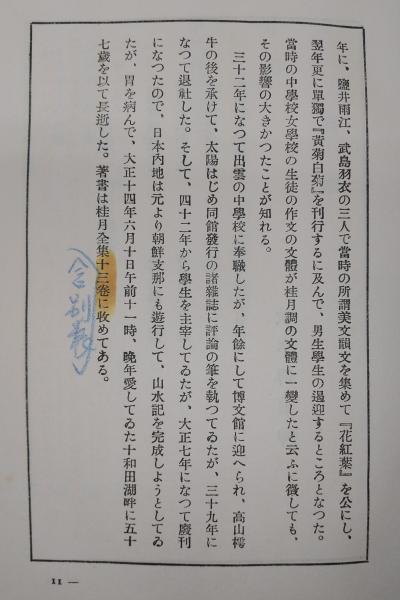 年に、鹽井雨江、武島羽衣の三人で當時の所謂美文韻文を集めて『花紅葉』を公にし、
翌年更に單獨で『黃菊白菊』を刊行するに及んで、男生學生の遏迎するところとなつた。
當時の中學校女學校の生徒の作文の文體が桂月調の文體に一變したと云ふに徵しても、
その影響の大きかつたことが知れる。
三十二年になつて出雲の中學校に奉職したが、年餘にして博文館に迎へられ、高山樗
牛の後を承けて、太陽はじめ同館發行の諸雜誌に評論の筆を執つてゐたが、三十九年に
なつて退社した。そして、四十二年から學生を主宰してゐたが、大正七年になつて廢刊
になつたので、日本內地は元より朝鮮支那にも遊行して、山水記を完成しようとしてゐ
たが、胃を病んで、大正十四年六月十日午前十一時、晚年愛してゐた十和田湖畔に五十
七歲を以て長逝した。著書は桂月全集十三卷に收めてある。
別
11 —